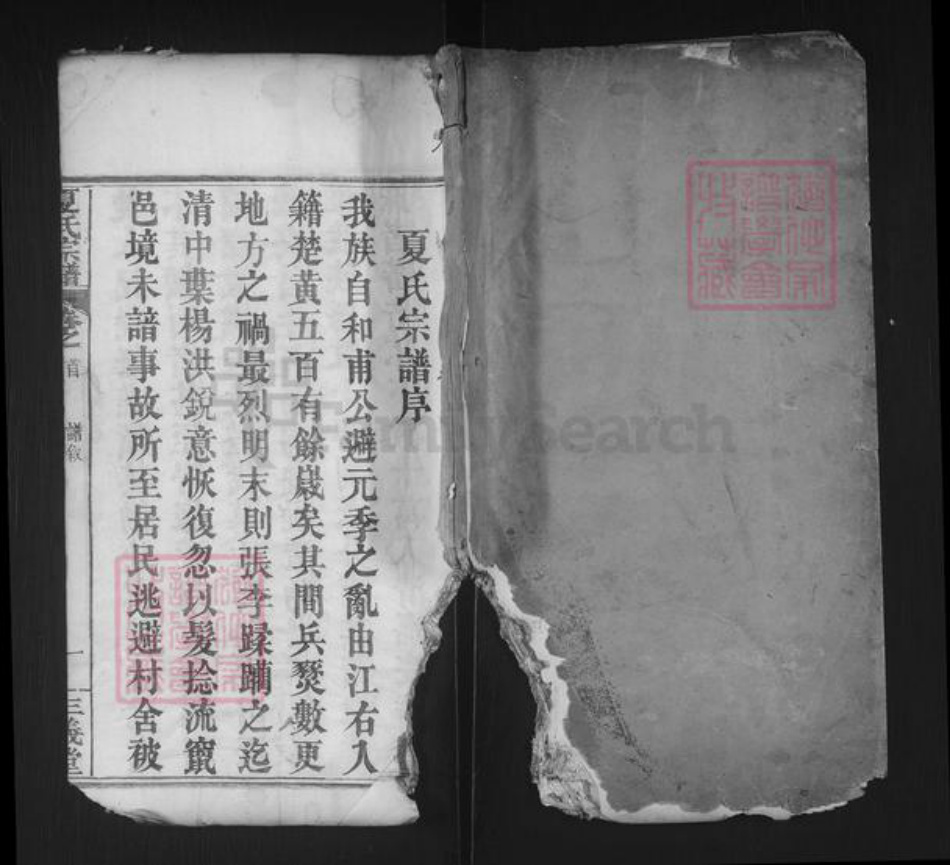 夏氏宗譜序
我族自和甫公避元季之亂由江右入
籍楚黃五百有餘歲矣其間兵燹數更
地方之禍最烈明末則張李蹂躪之迄
清中葉楊洪銳意恢復忽以髮捻流竄
邑境未諳事故所至居民逃避村舍被
夏氏宗譜
卷之首
譜敘
一
三義堂
FamilySearch